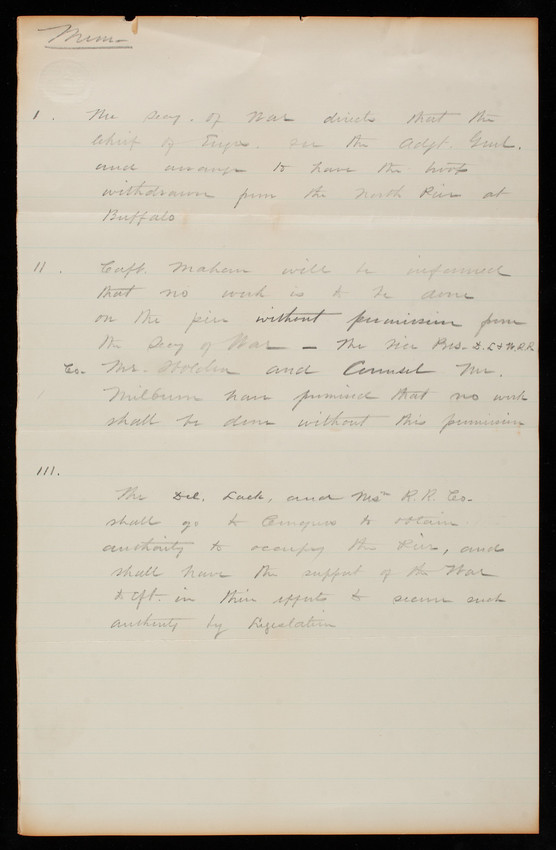 Mem-
I. The Secy. of War directs that the
Chief of Engrs. see the Adjt. Genl.
and arrange to have the troops
withdrawn from the North Pier at
Buffalo
II. Capt. Mahan will be informed
that no work is to be done
on the pier without permission from
the Secy of War – The Vice Pres. D.L & W.R.R
Co. Mr. Holden and Counsel Mr.
Milburn have promised that no work
shall be done without this permission
III.
The Del. Lack, and Wsn R.R. Co.
shall go to Congress to obtain
authority to occupy the Pier, and
shall have the support of the War
Dept. in their efforts to secure such
authority by Legislation